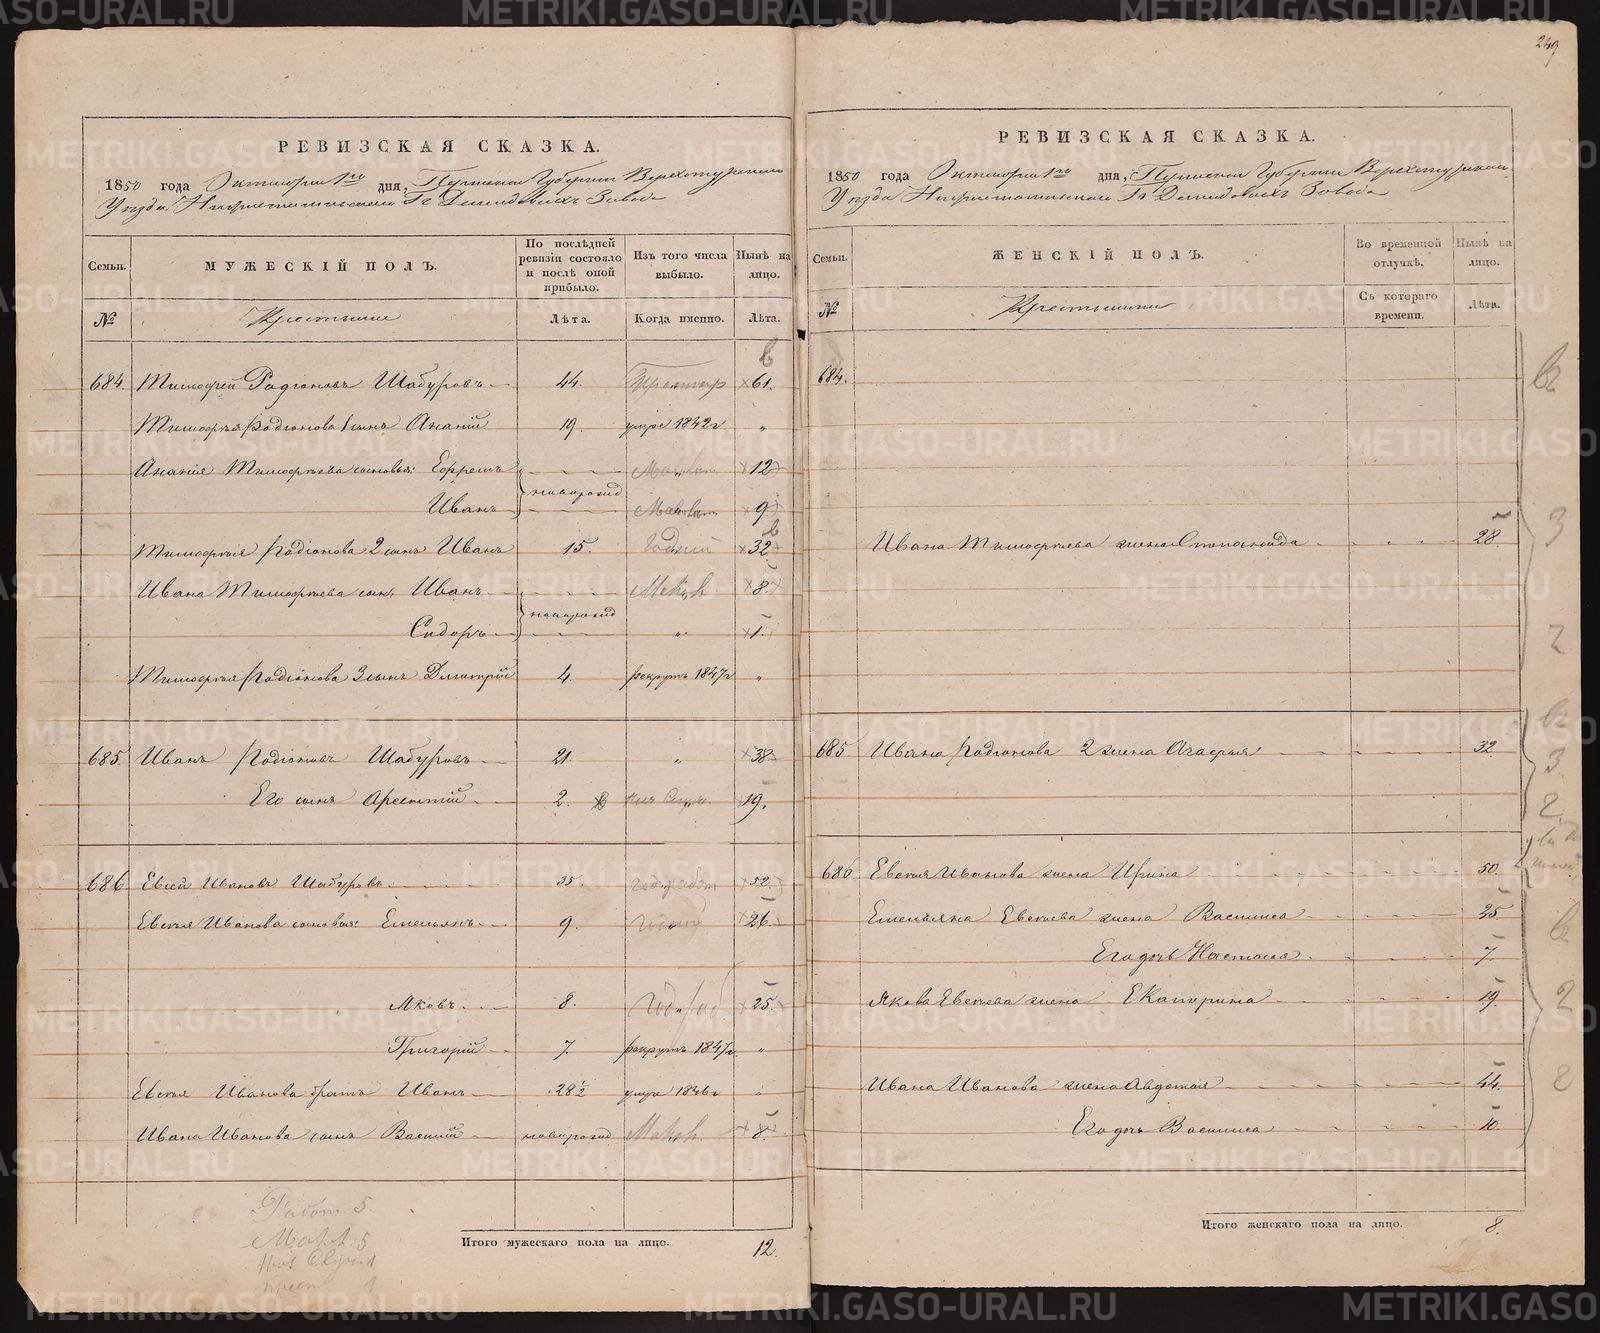 249
РЕВИЗСКАЯ СКАЗКА.
1850 года Октября 1го дня, Пермской Губернии Верхотурскаго
Уезда Нижнетагильскаго Гг Демидовыхъ Завода
Семьи.
МУЖЕСКІЙ ПОЛЪ.
По послѣдней ревизіи состояло и послѣ оной прибыло.
Изъ того числа выбыло.
Нынѣ на лицо.
№
Крестьяне
Лѣта.
Когда именно.
Лѣта.
684. Тимофей Родіоновъ Шабуровъ 44. Престар 61.
Тимофея Родіонова 1 сынъ Ананій 19. умре 1842г "
Ананія Тимофеева сыновья: Ефремъ новорожд 12
Иванъ 9
Тимофея Родіонова 2 сынъ Иванъ 15. Годный 32
Ивана Тимофеева сын, Иванъ новорожд 8
Сидоръ " 1.
Тимофея Родіонова 3 сынъ Дмитрій 4. рекрутъ 1847г "
685. Иванъ Родіоновъ Шабуровъ 21. " 38
Его сынъ Арсентій 2. 19.
686 Евсей Ивановъ Шабуровъ 35. год работ 52.
Евсея Иванова сыновья: Емельянъ 9. 26
Яковъ 8. Год раб 25.
Григорій 7. рекрутъ 1847г "
Евсея Иванова братъ Иванъ 28 1/2 умре 1846г "
Ивана Иванова сынъ Василій новорожд 8
Работ 5.
Мал 5
Итого мужескаго пола на лицо. 12.
РЕВИЗСКАЯ СКАЗКА.
1850 года Октября 1го дня, Пермской Губернии Верхотурскаго
Уезда Нижнетагильскаго Гг Демидовыхъ Завода
Семьи.
ЖЕНСКІЙ ПОЛЪ.
Во временной отлучкѣ.
Нынѣ на лицо.
№
Крестьянки
Съ котораго времени.
Лѣта.
684.
Ивана Тимофеева жена Степанида 28
685 Ивана Родіонова 2 жена Агафья 32
686 Евсея Иванова жена Ирина 50.
Емельяна Евсеева жена Василиса 25
Его дочь Настасья 7.
Якова Евсеева жена Екатерина 19.
Ивана Иванова жена Авдотья 44.
Его дочь Василиса 10.
Итого женскаго пола на лицо. 8.
METRIKI.GASO-URAL.RU